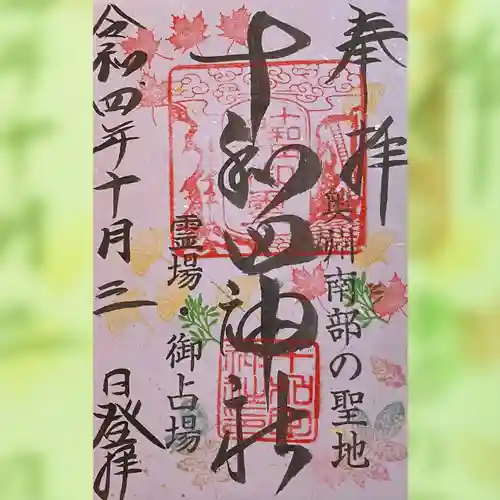 奉拝
奥州南部の聖地
十和田神社
霊場・御占場
令和四年十月三日登拝